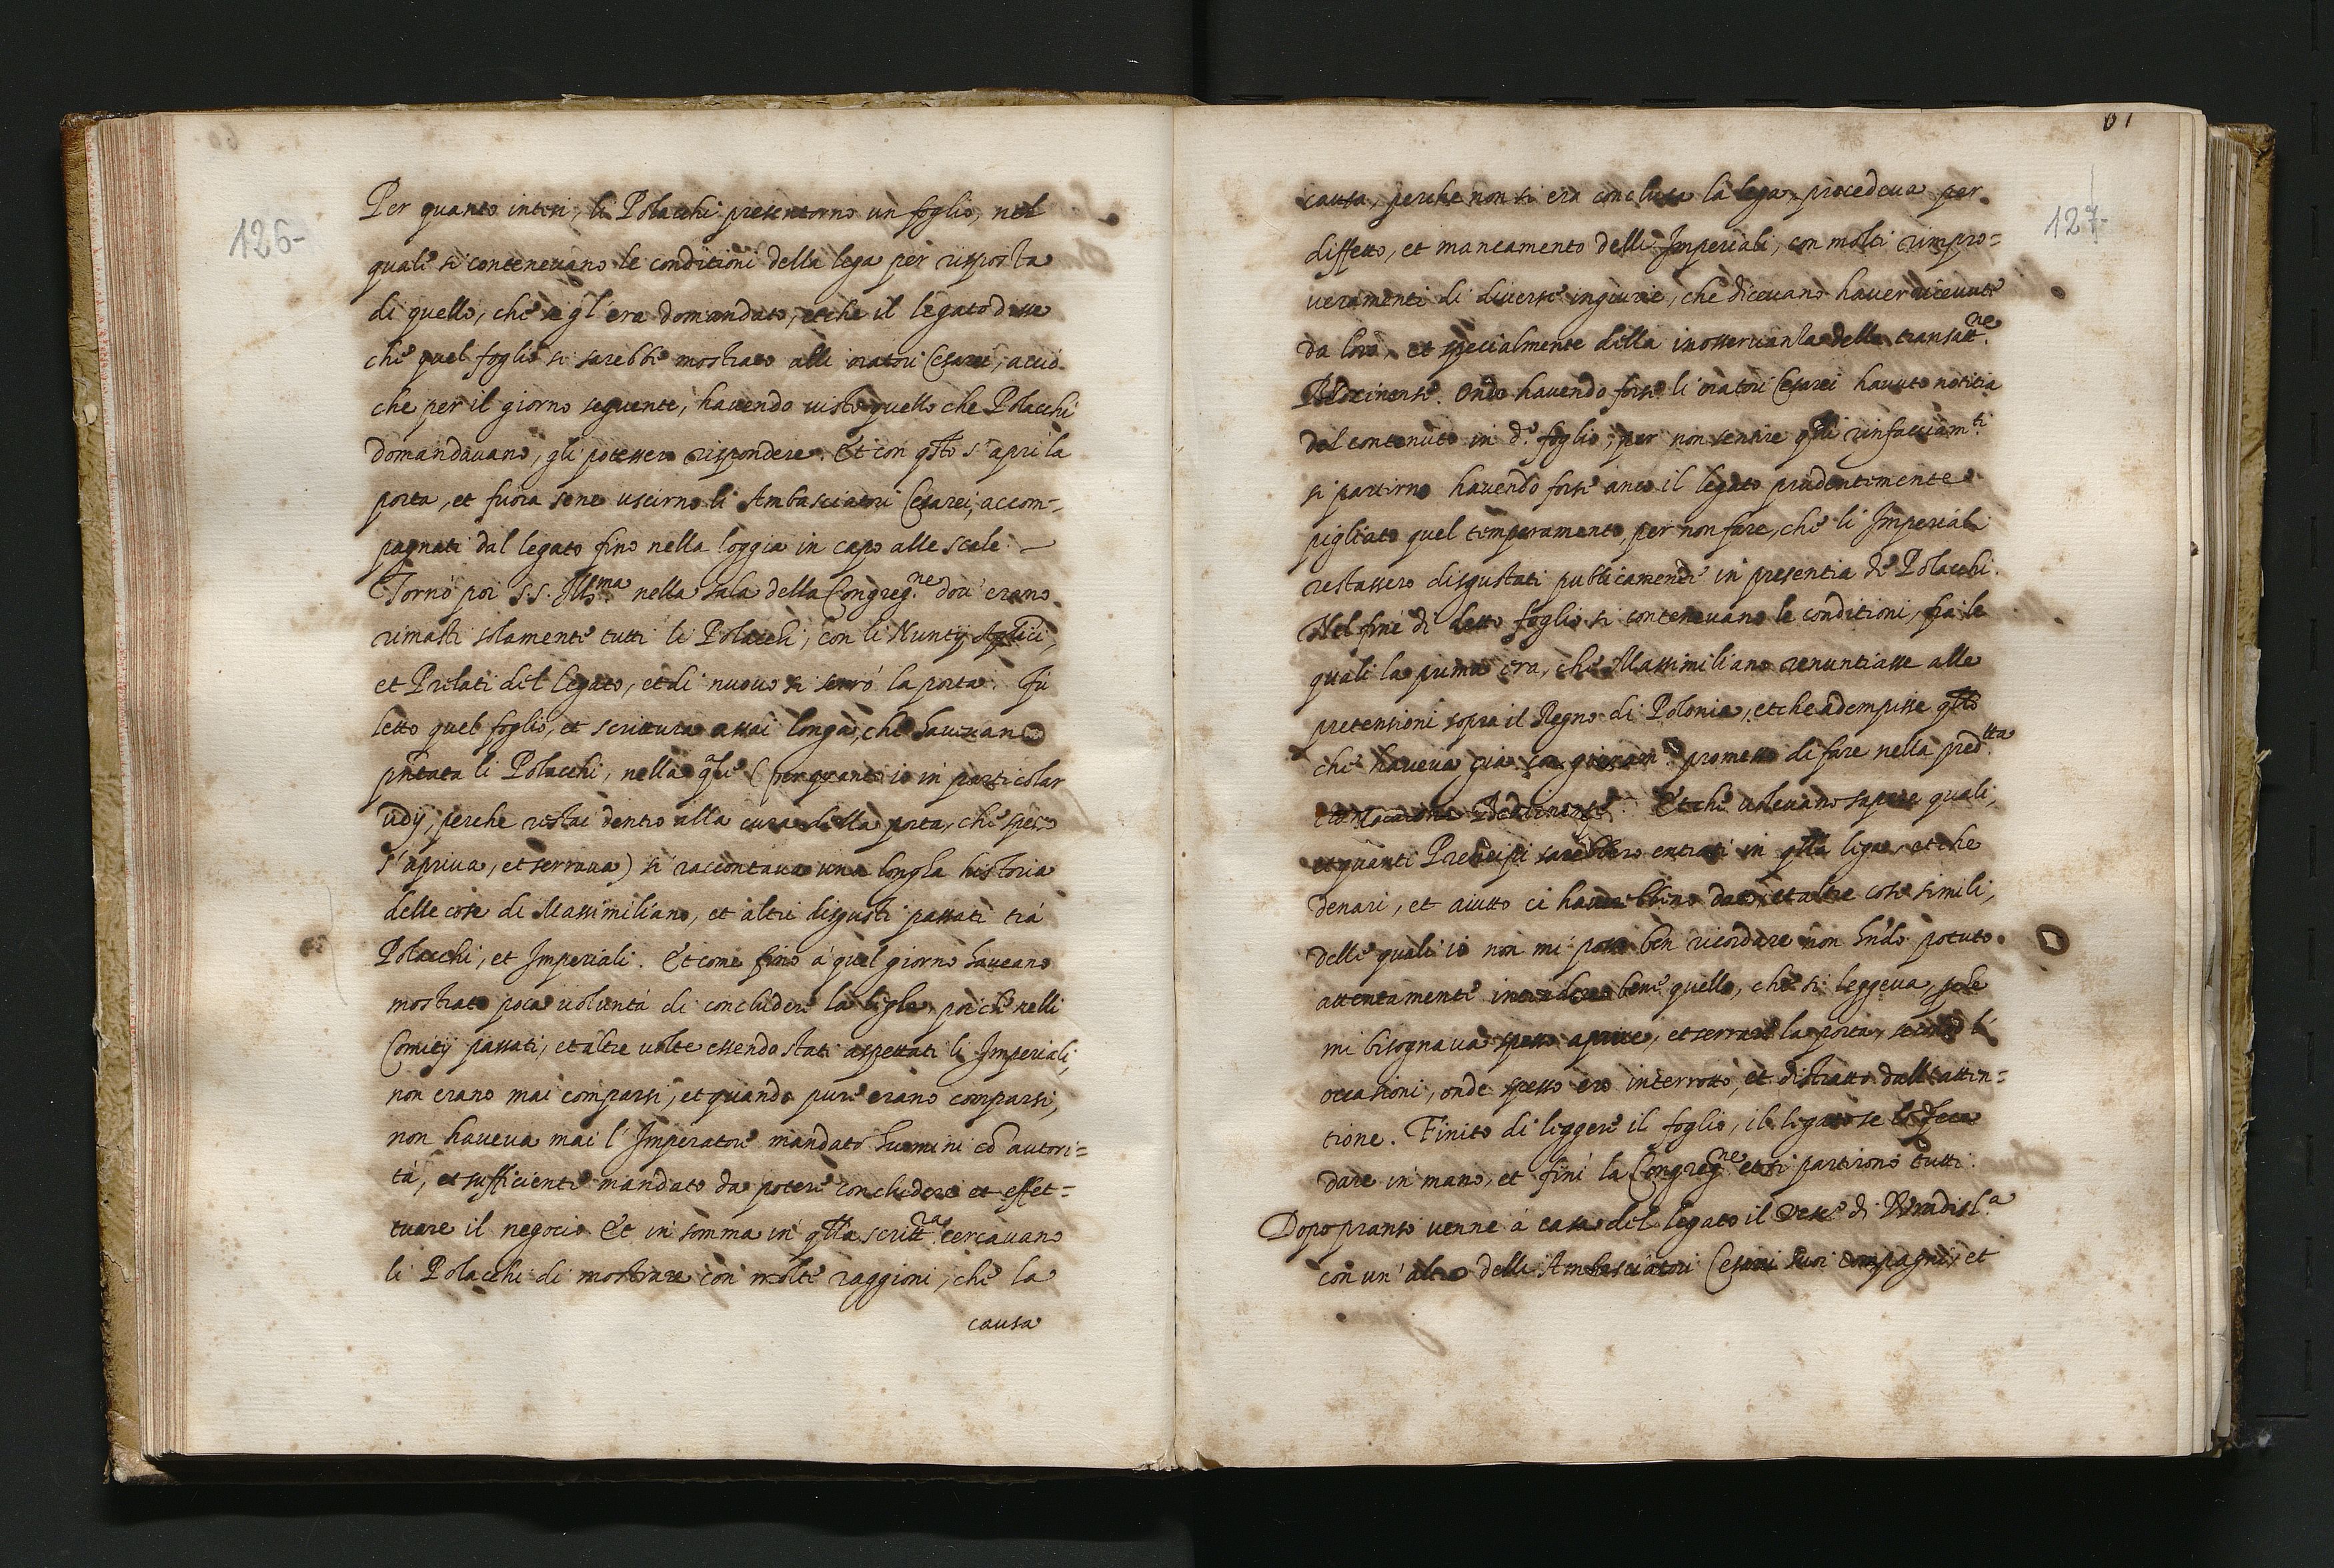 126-
Per quanto intesi, li Polacchi presentorno un foglio, nel
quale si contenevano le conditioni della lega per risposta
di quello, che se gl'era domandato, et che il legato disse
che quel foglio si sarebbe mostrato alli oratori Cesarei, acciò
che per il giorno seguente, havendo visto quello che Polacchi
domandavano, gli potessero rispondere. Et con qsto s'aprì la
porta, et fuora sene uscirno li Ambasciatori Cesarei, accom-
pagnati dal legato fino nella loggia in capo alle scale.
Tornò poi S.S. Illma nella sala della Congregne dov'erano
rimasti solamente tutti li Polacchi, con li Nuntij Aplici,
et Prelati del legato, et di nuovo si serrò la porta. Fù
letto quel foglio, et scrittura assai longa, che havevano
pntata li Polacchi, nella qle (per quanto io in particolar
udij, perche restai dentro alla cura della porta, che spesso
s'apriva, et serrava) si raccontava una longha historia
delle cose di Massimiliano, et altri disgusti passati trà
Polacchi, et Imperiali. Et come fino à quel giorno haveano
mostrato poca voluntà di concludere la ligha, poiche nelli
Comitij passati, et altre volte essendo stati aspettati li Imperiali,
non erano mai comparsi, et quando pure erano comparsi,
non haveva mai l'Imperatore mandato huomini cō autori=
tà, et sufficiente mandato da potere concludere et effet=
tuare il negocio Et in somma in qlla scrittra cercavano
li Polacchi di mostrare con molte raggioni, che la
causa
61
127-
causa, perche non si era conclusa la lega, procedeva per
diffetto, et mancamento delli Imperiali, con molti rimpro=
veramenti di diverse ingiurie, che dicevano haver ricevute
da loro, et specialmente della inosservanza della transattne
Bedzinense. Onde havendo forse li oratori Cesarei havuto notitia
del contenuto in do foglio, per non sentire qlli rinfacciamti
si partirno havendo forse anco il legato prudentemente
pigliato quel temperamento, per non fare, che li Imperiali
restassero disgustati publicamente in presentia de Polacchi.
Nel fine di detto foglio si contenevano le conditioni, fra le
quali la prima era, che Massimiliano renuntiasse alle
pretensioni sopra il Regno di Polonia, et che adempisse qsto
che haveva già con giuramto promesso di fare nella predtta
Et che volevano sapere quali,
et quanti Prencipi sarebbero entrati in qlla liga, et che
denari, et aiutto ci haverebbono dato, et altre cose simili,
delle quali io non mi posso ben ricordare non hndo potuto
attentamente intendere bene quello, che si leggeva, pche
mi bisognava spesso aprire, et serrare la porta, secondo l'
occasioni, onde spesso ero interrotto, et distratto dall'atten=
tione. Finito di leggere il foglio, il legato se lo fece
dare in mano, et finì la Congregne et si partirono tutti.
Dopo pranso venne à casa del legato il Vesco di Wradisla
con un'altro delli Ambasciatori Cesarei suoi compagni, et